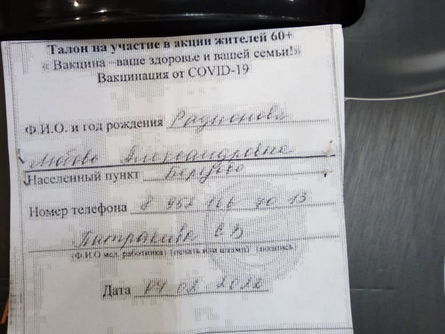 Талон на участие в акции жителей 60+
« Вакцина – ваше здоровье и вашей семьи!»
Вакцинация от COVID-19
Ф.И.О. и год рождения Радионова
Любовь Александровна
Населенный пункт
Номер телефона 8 952 116 40 13
С В
(Ф.И.О мед. работника) (печать или штамп) (подпись)
Дата 04 02 2022